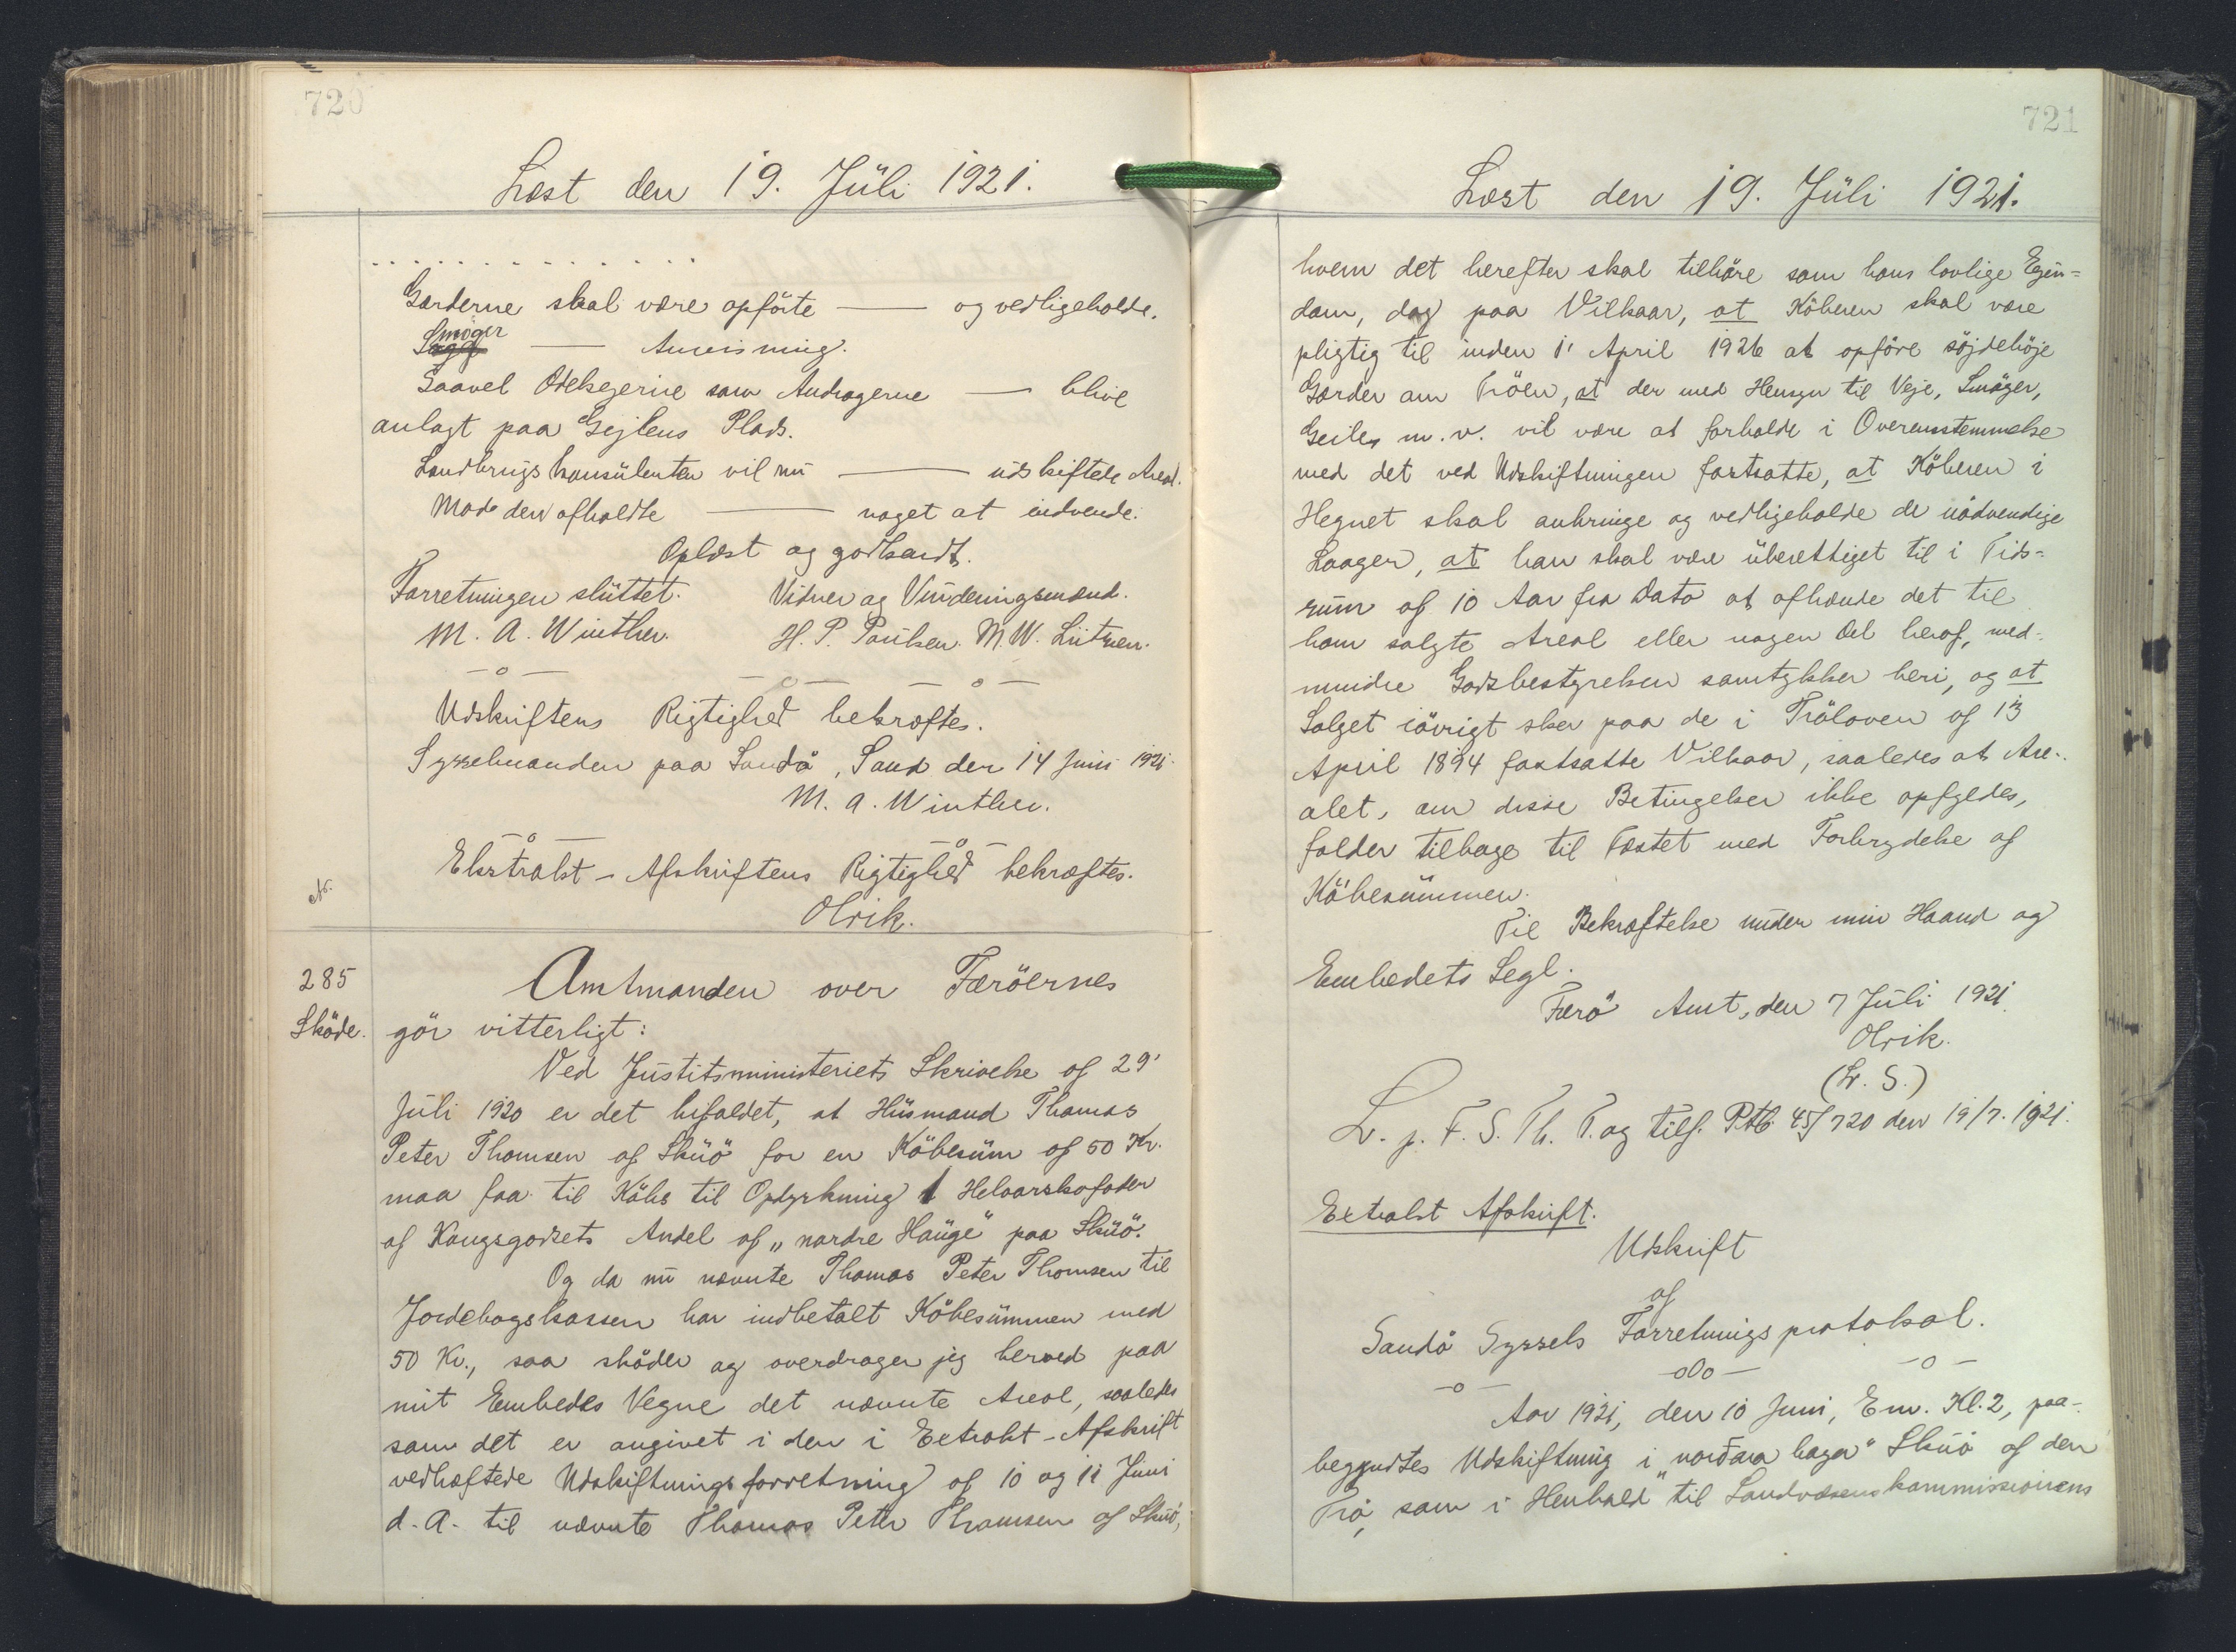 720
Læst den 19. Jüli 1921.
. . . . . . . . . . . . . .
Gærderne skal være opförte — og vedligeholde.
Smøger — Anvisning.
Saavel Odelsejerne som Andragerne — blive
anlagt paa Gejlens Plads.
Landbrugskonsülenten vil nü — üdskiftede Areal.
Mod den afholdte — noget at indvende.
Oplæst og godkendt.
Forretningen slüttet. Vidner og Vürderingsmænd.
M. A. Winther. H. P. Poülsen. M. W. Lützen.
Udskriftens Rigtighed bekræftes.
Sysselmanden paa Sandö, Sand den 14 Juni 1921.
M. A. Winther.
Ekstrakt-Afskriftens Rigtighed bekræftes.
Olrik.
Nr.
285
Sköde.
Amtmanden over Færöernes
gör vitterligt:
Ved Jüstitsministeriets Skrivelse af 29'
Jüli 1920 er det bifaldet, at Hüsmand Thomas
Peter Thomsen af Sküö for en Köbesüm af 50 Kr.
maa faa til Köbs til Opdyrkning 1 Helaarskofoder
af Kongsgodsets Andel af „nordre Haüge" paa Sküö.
Og da nü nævnte Thomas Peter Thomsen til
Jordebogskassen har indbetalt Köbesümmen med
50 Kr., saa sköder og overdrager jeg herved paa
mit Embedes Vegne det nævnte Areal, saaledes
som det er angivet i den i Extrakt-Afskrift
vedhæftede Udskiftningsforretning af 10 og 11 Juni
d. A. til nævnte Thomas Peter Thomsen af Sküö,
721
Læst den 19. Jüli 1921.
hvem det herefter skal tilhöre som hans lovlige Ejen=
dom, dog paa Vilkaar, at Köberen skal være
pligtig til inden 1' April 1926 at opföre söjdehöje
Gærder om Tröen, at der med Hensyn til Veje, Smöger,
Geiler m. v. vil være at forholde i Overensstemmelse
med det ved Udskiftningen fastsatte, at Köberen i
Hegnet skal anbringe og vedligeholde de nödvendige
Laager, at han skal være überettiget til i Tids=
rüm af 10 Aar fra Dato at afhænde det til
ham solgte Areal eller nogen Del heraf, med-
mindre Godsbestyrelsen samtykker heri, og at
Salget iövrigt sker paa de i Tröloven af 13
April 1894 fastsatte Vilkaar, saaledes at Are-
alet, om disse Betingelser ikke opfyldes,
falder tilbage til Fæstet med Forbrydelse af
Köbesümmen.
Til Bekræftelse ünder min Haand og
Embedets Segl.
Færö Amt, den 7 Jüli 1921.
Olrik.
(L. S.)
L. p. F. S. Th. T. og tilf. Ptb. 45/720 den 19/7. 1921.
Extrakt Afskrift.
Udskrift
af
Sandö Syssels Forretningsprotokol.
Aar 1921, den 10 Juni, Em. Kl. 2, paa-
begyndtes Udskiftning i „nordara haga" Sküö af den
Trö, som i Henhold til Landvæsenskommissionens